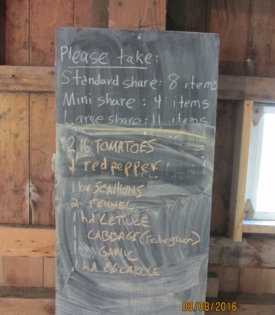 Please take:
Standard share: 8 items
Mini share: 4 items
Large share: 11 items
2 lb TOMATOES
1 red pepper
1 bu SCALLIONS
2 FENNEL
1 hd LETTUCE
1 CABBAGE (red or green)
1 GARLIC
1 hd ESCAROLE
08/08/2016